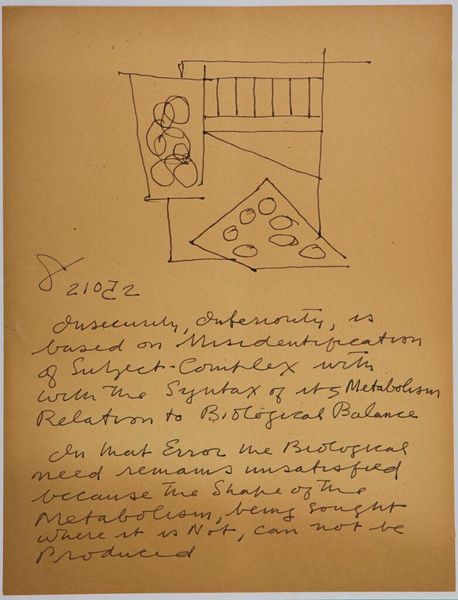 210 2
Insecurity, Inferiority, is
based on Misidentification
of Subject-Complex with
with the Syntax of its Metabolism
Relation to Biological Balance
In that Error the Biological
need remains unsatisfied
because the Shape of the
Metabolism, being sought
where it is Not, can not be
Produced